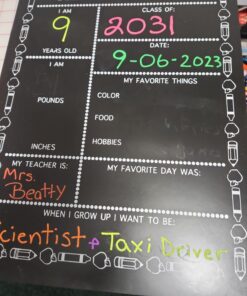 I AM
CLASS OF:
9
2031
YEARS OLD
DATE:
9-06-2023
I AM
MY FAVORITE THINGS
POUNDS
COLOR
FOOD
HOBBIES
INCHES
MY TEACHER IS:
MY FAVORITE DAY WAS:
Mrs.
Beatty
WHEN I GROW UP I WANT TO BE:
cientist + Taxi Driver